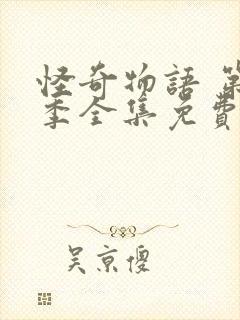 怪奇物語 第
季全集免費
吴京傻